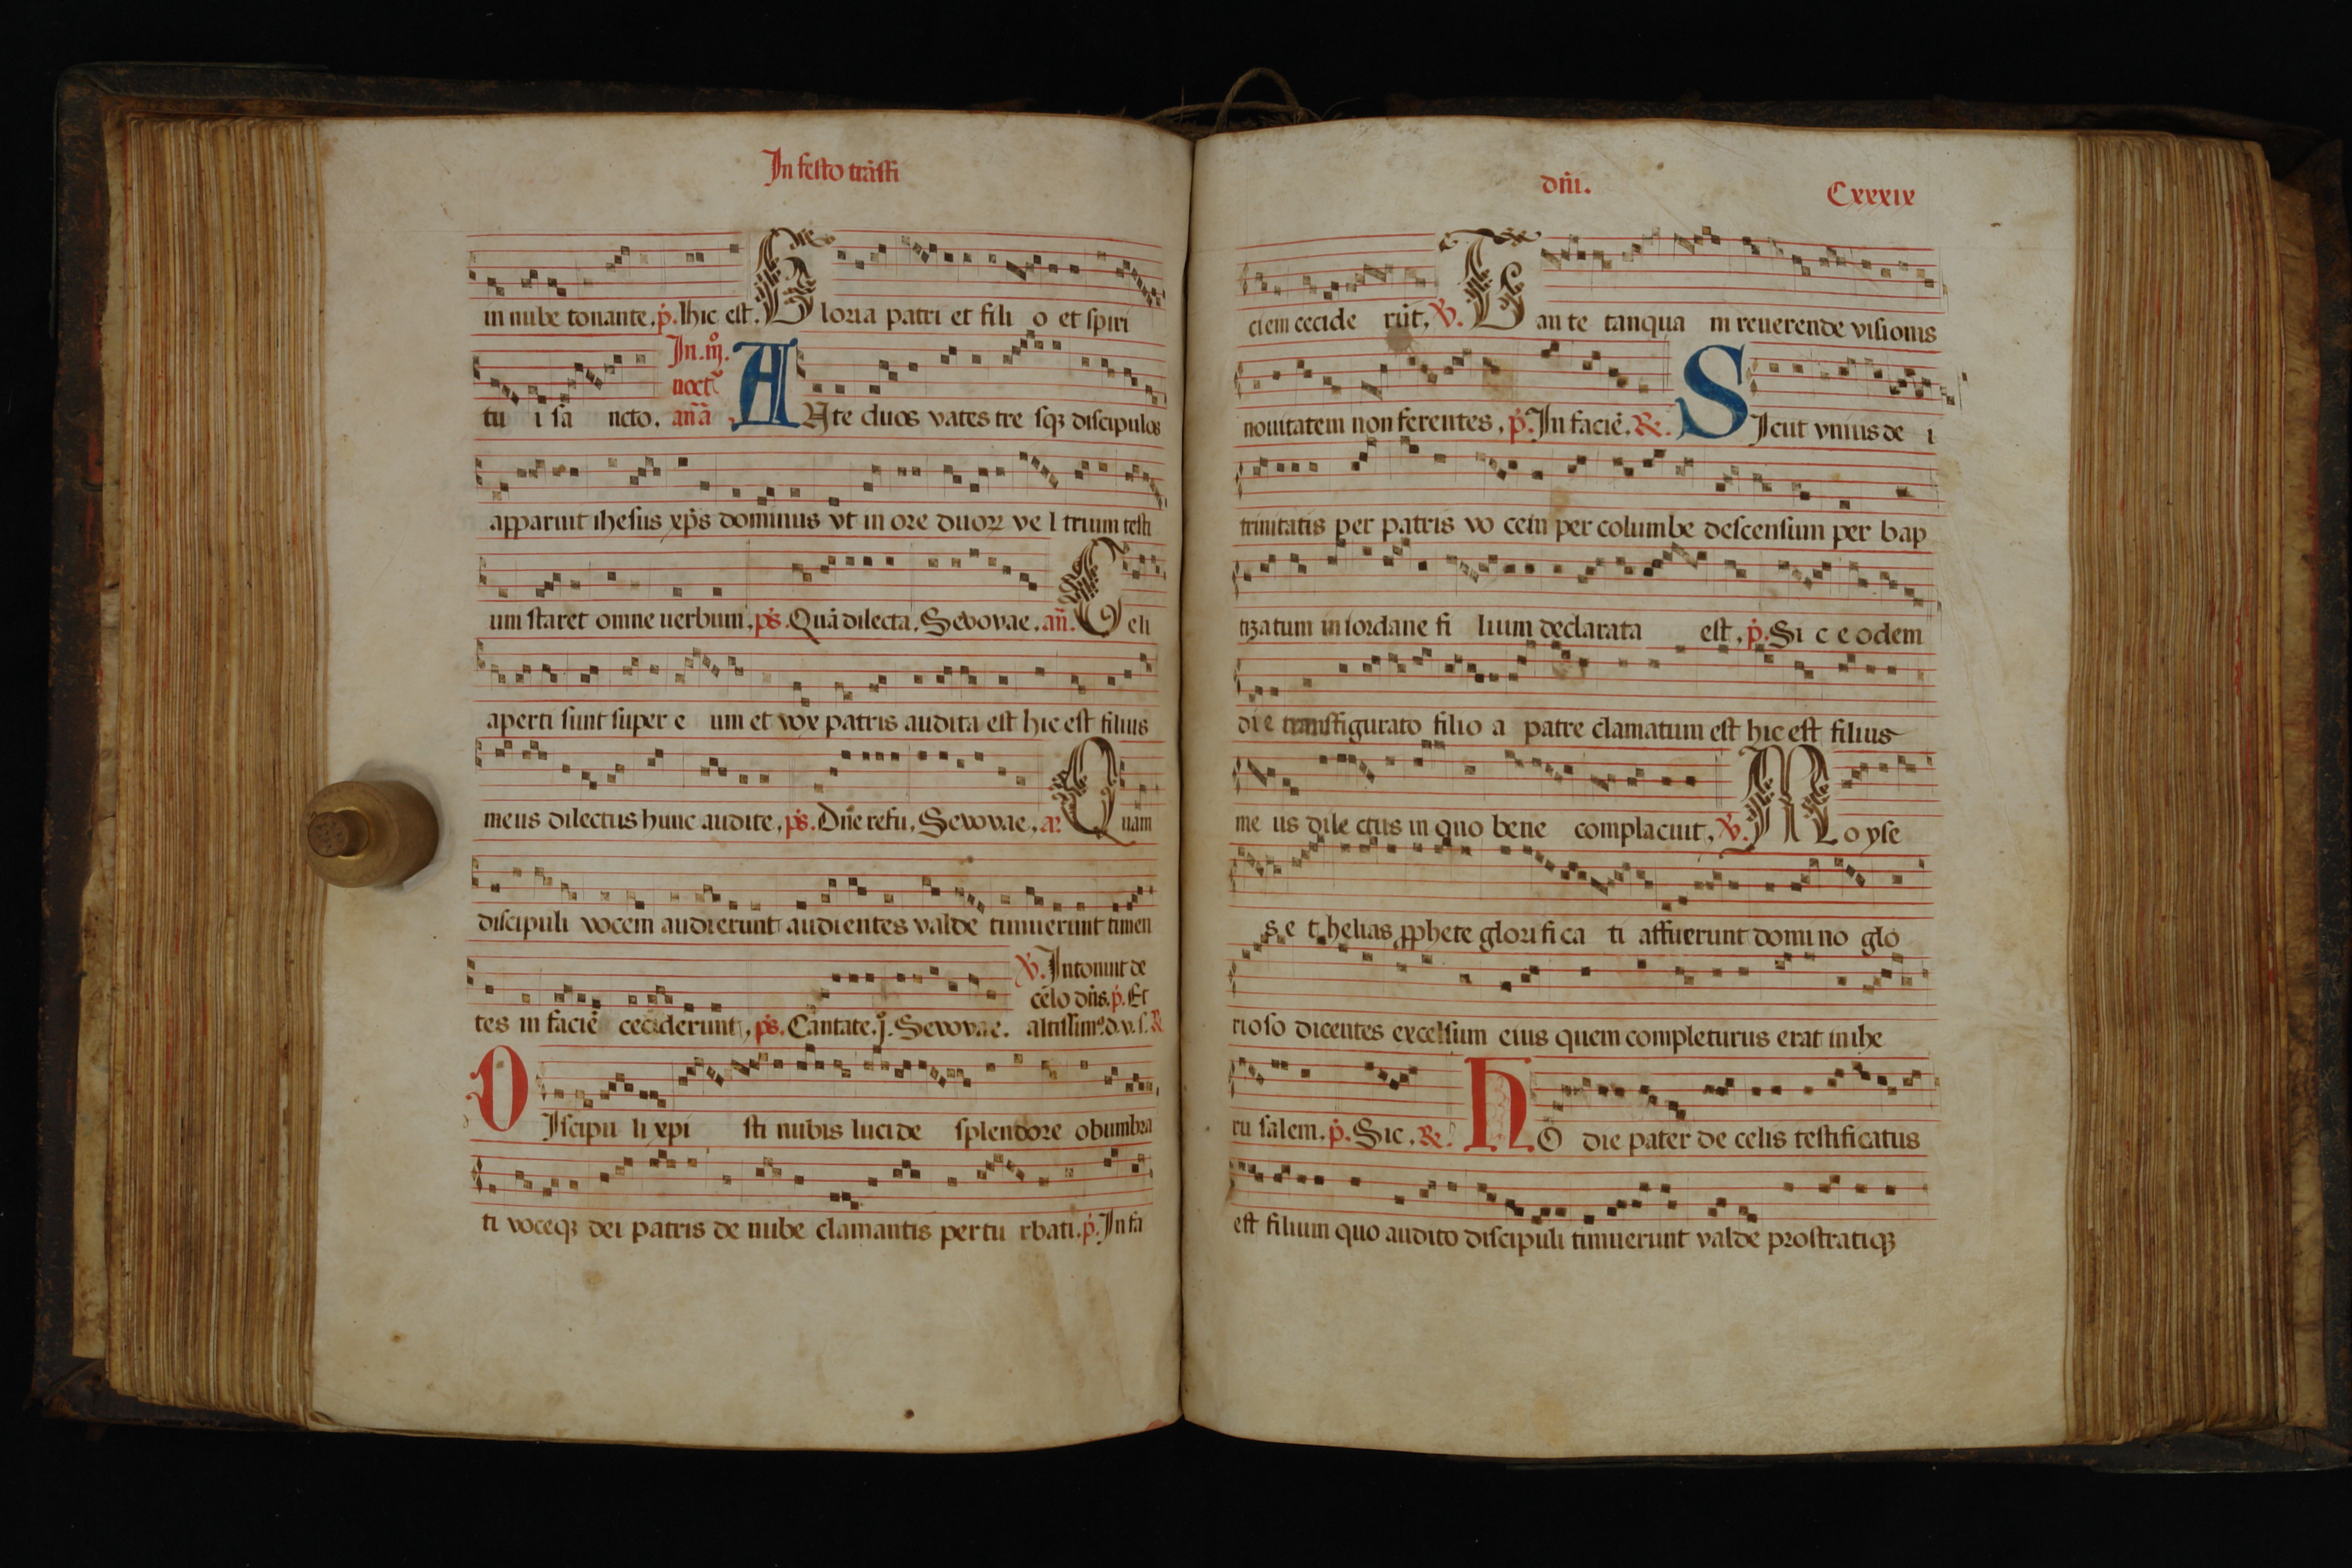 In festo trāsfi
in nube tonante. p̄. Hic est. Gloria patri et fili o et spiri
In .iij.
noct̄
tu i sā ncto. anā ANte duos vates tre sqꝫ discipulos
apparuit ihesus xp̄s dominus vt in ore duoꝝ ve l trium testi
um staret omne uerbum. ps̄. Quā dilecta. Seuouae. an̄. Celi
aperti sunt super e um et vox patris audita est hic est filius
meus dilectus hunc audite. ps̄. Dn̄e refu. Seuouae. a. Quam
discipuli vocem audierunt audientes valde timuerunt timen
V̄. Intonuit de
celo dn̄s. p̄. Et
tes in faciē ceciderunt. ps̄. Cantate. j. Seuouae. altissimꝰ. d. v. s. R
DIscipu li xpi sti nubis lucide splendore obumbra
ti voceqꝫ dei patris de nube clamantis pertu rbati. p̄. In fa
dn̄i.
Cxxxix
ciem cecide rūt. V̄. Uante tanqua m reuerende visionis
nouitatem non ferentes. p̄. In faciē. Re. SIcut vnius de i
trinitatis per patris vo cem per columbe descensum per bap
tizatum in iordane fi lium declarata est. p̄. Si c e odem
die transfigurato filio a patre clamatum est hic est filius
me us dile ctus in quo bene complacuit. V̄. Moyse
s e t helias ꝓphete glorifica ti affuerunt domino glo
rioso dicentes excelsum eius quem completurus erat in ihe
ru salem. p̄. Sic. Re. HO die pater de celis testificatus
est filium quo audito discipuli timuerunt valde prostratiqꝫ